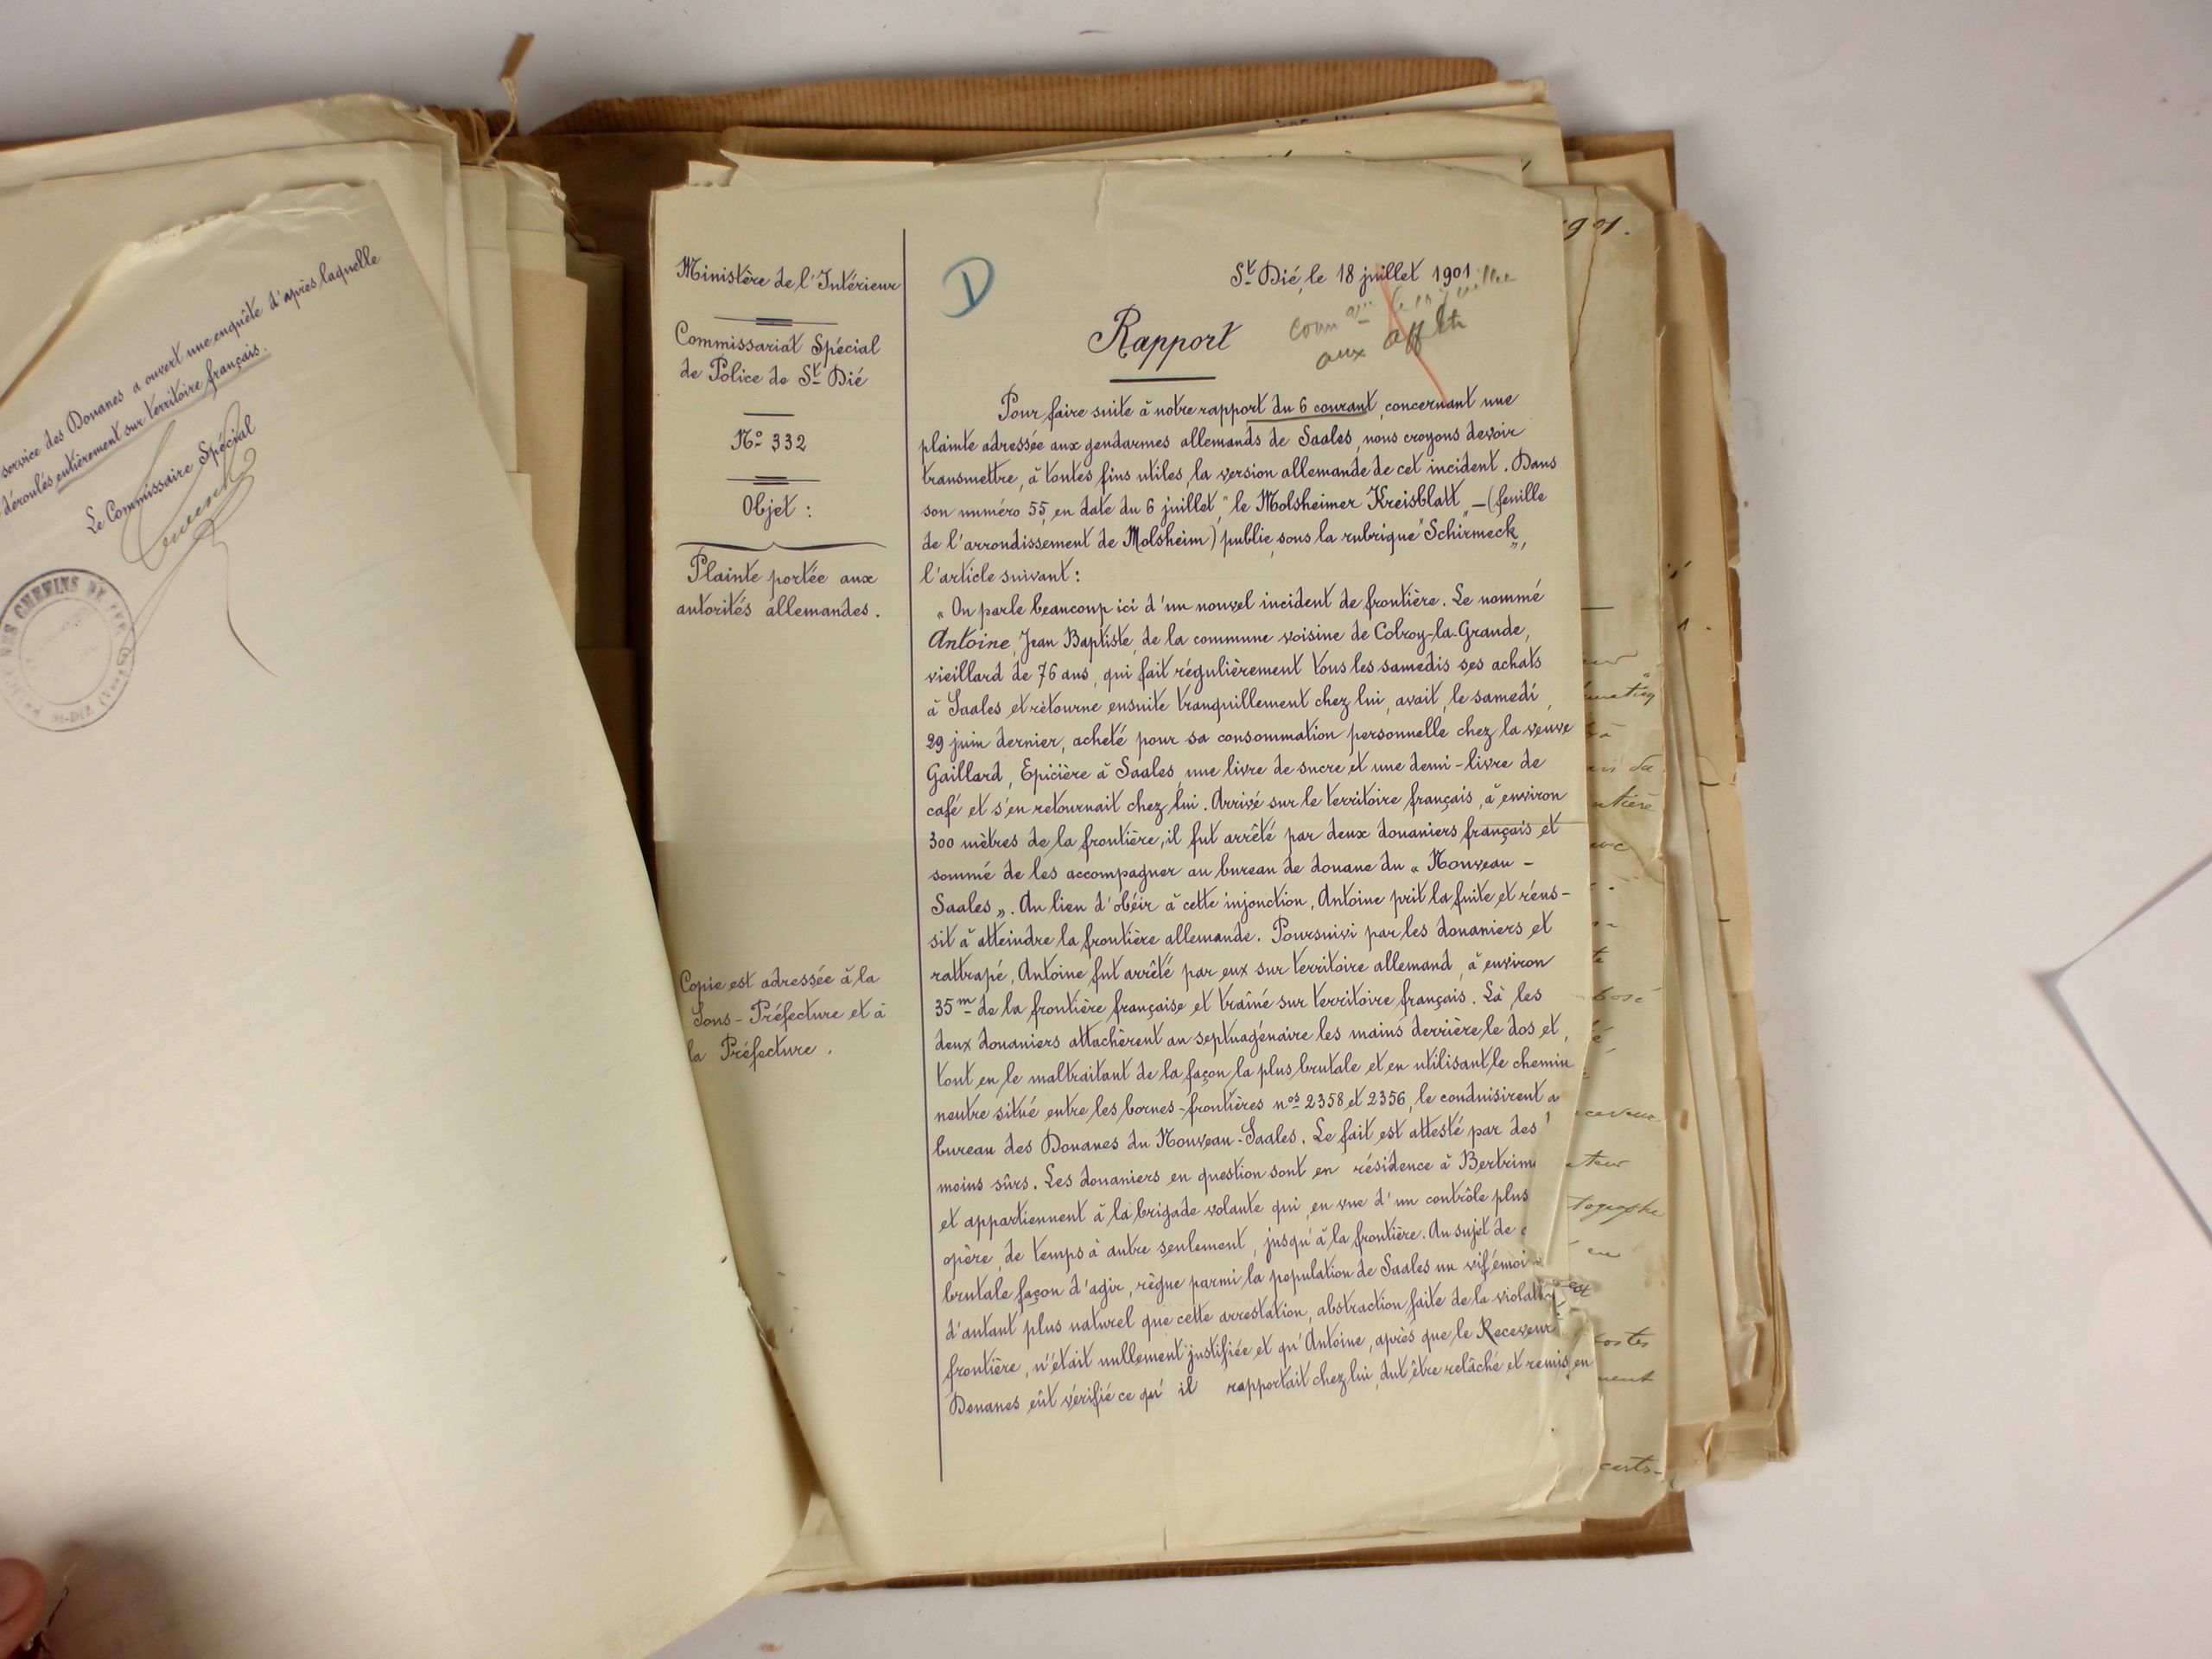 service des Douanes a ouvert une enquête d'après laquelle
déroulés entièrement sur territoire français.
Le Commissaire Spécial
CHEMINS DE FER
Ministère de l'Intérieur
Commissariat Spécial
de Police de St Dié
No 332
Objet :
Plainte portée aux
autorités allemandes.
Copie est adressée à la
Sous-Préfecture et à
la Préfecture.
D
St Dié, le 18 juillet 1901
Rapport
aux
Pour faire suite à notre rapport du 6 courant, concernant une
plainte adressée aux gendarmes allemands de Saales, nous croyons devoir
transmettre, à toutes fins utiles, la version allemande de cet incident. Dans
son numéro 55, en date du 6 juillet, "le Molsheimer Kreisblatt" – (feuille
de l'arrondissement de Molsheim) publie, sous la rubrique "Schirmeck",
l'article suivant :
« On parle beaucoup ici d'un nouvel incident de frontière. Le nommé
Antoine, Jean Baptiste, de la commune voisine de Colroy-la-Grande,
vieillard de 76 ans, qui fait régulièrement tous les samedis ses achats
à Saales et retourne ensuite tranquillement chez lui, avait, le samedi,
29 juin dernier, acheté pour sa consommation personnelle chez la veuve
Gaillard, Epicière à Saales, une livre de sucre et une demi-livre de
café et s'en retournait chez lui. Arrivé sur le territoire français, à environ
300 mètres de la frontière, il fut arrêté par deux douaniers français et
sommé de les accompagner au bureau de douane du « Nouveau-
Saales ». Au lieu d'obéir à cette injonction, Antoine prit la fuite et réus-
sit à atteindre la frontière allemande. Poursuivi par les douaniers et
rattrapé, Antoine fut arrêté par eux sur territoire allemand, à environ
35m de la frontière française et traîné sur territoire français. Là les
deux douaniers attachèrent au septuagénaire les mains derrière le dos et,
tout en le maltraitant de la façon la plus brutale et en utilisant le chemin
neutre situé entre les bornes-frontières nos 2358 et 2356, le conduisirent a
bureau des Douanes du Nouveau-Saales. Le fait est attesté par des
moins sûrs. Les douaniers en question sont en résidence à Bertrim
et appartiennent à la brigade volante qui, en vue d'un contrôle plus
opère, de temps à autre seulement, jusqu'à la frontière. Au sujet de c
brutale façon d'agir, règne parmi la population de Saales un vif émoi
d'autant plus naturel que cette arrestation, abstraction faite de la violati
frontière, n'était nullement justifiée et qu'Antoine, après que le Receveur
Douanes eût vérifié ce qu'il rapportait chez lui, dut être relâché et remis en